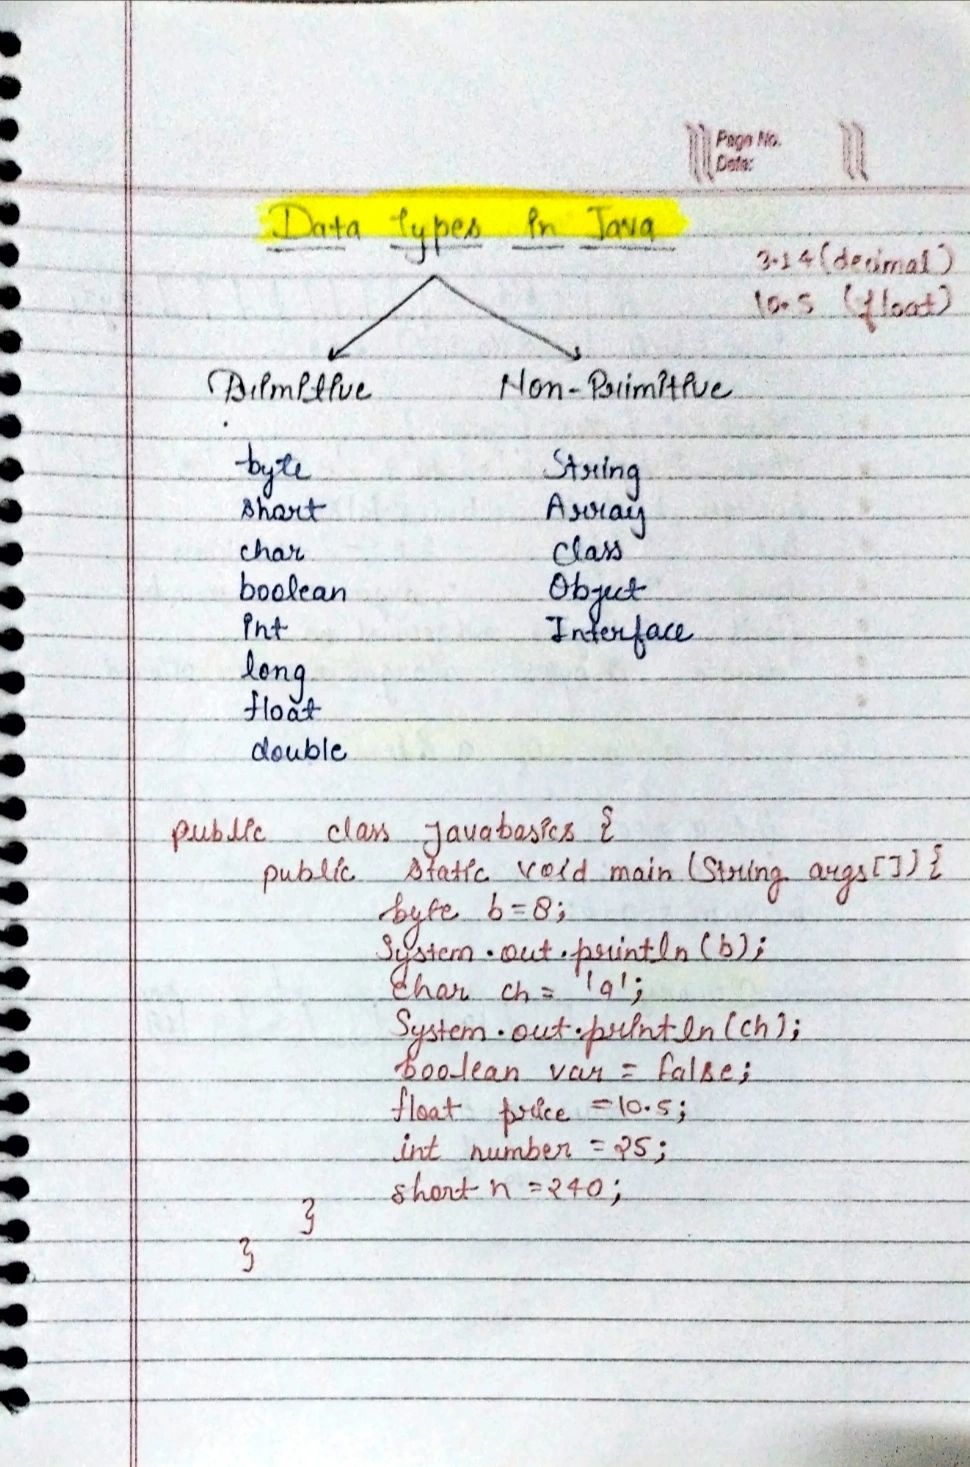 Page No.
Date:
Data Types in Java
3.14 (decimal)
10.5 (float)
Primitive Non-Primitive
byte String
short Array
char Class
boolean Object
int Interface
long
float
double
public class javabasics {
public static void main (String args[]) {
byte b = 8;
System.out.println(b);
char ch = 'a';
System.out.println(ch);
boolean var = false;
float price = 10.5;
int number = 25;
short n = 240;
}
}